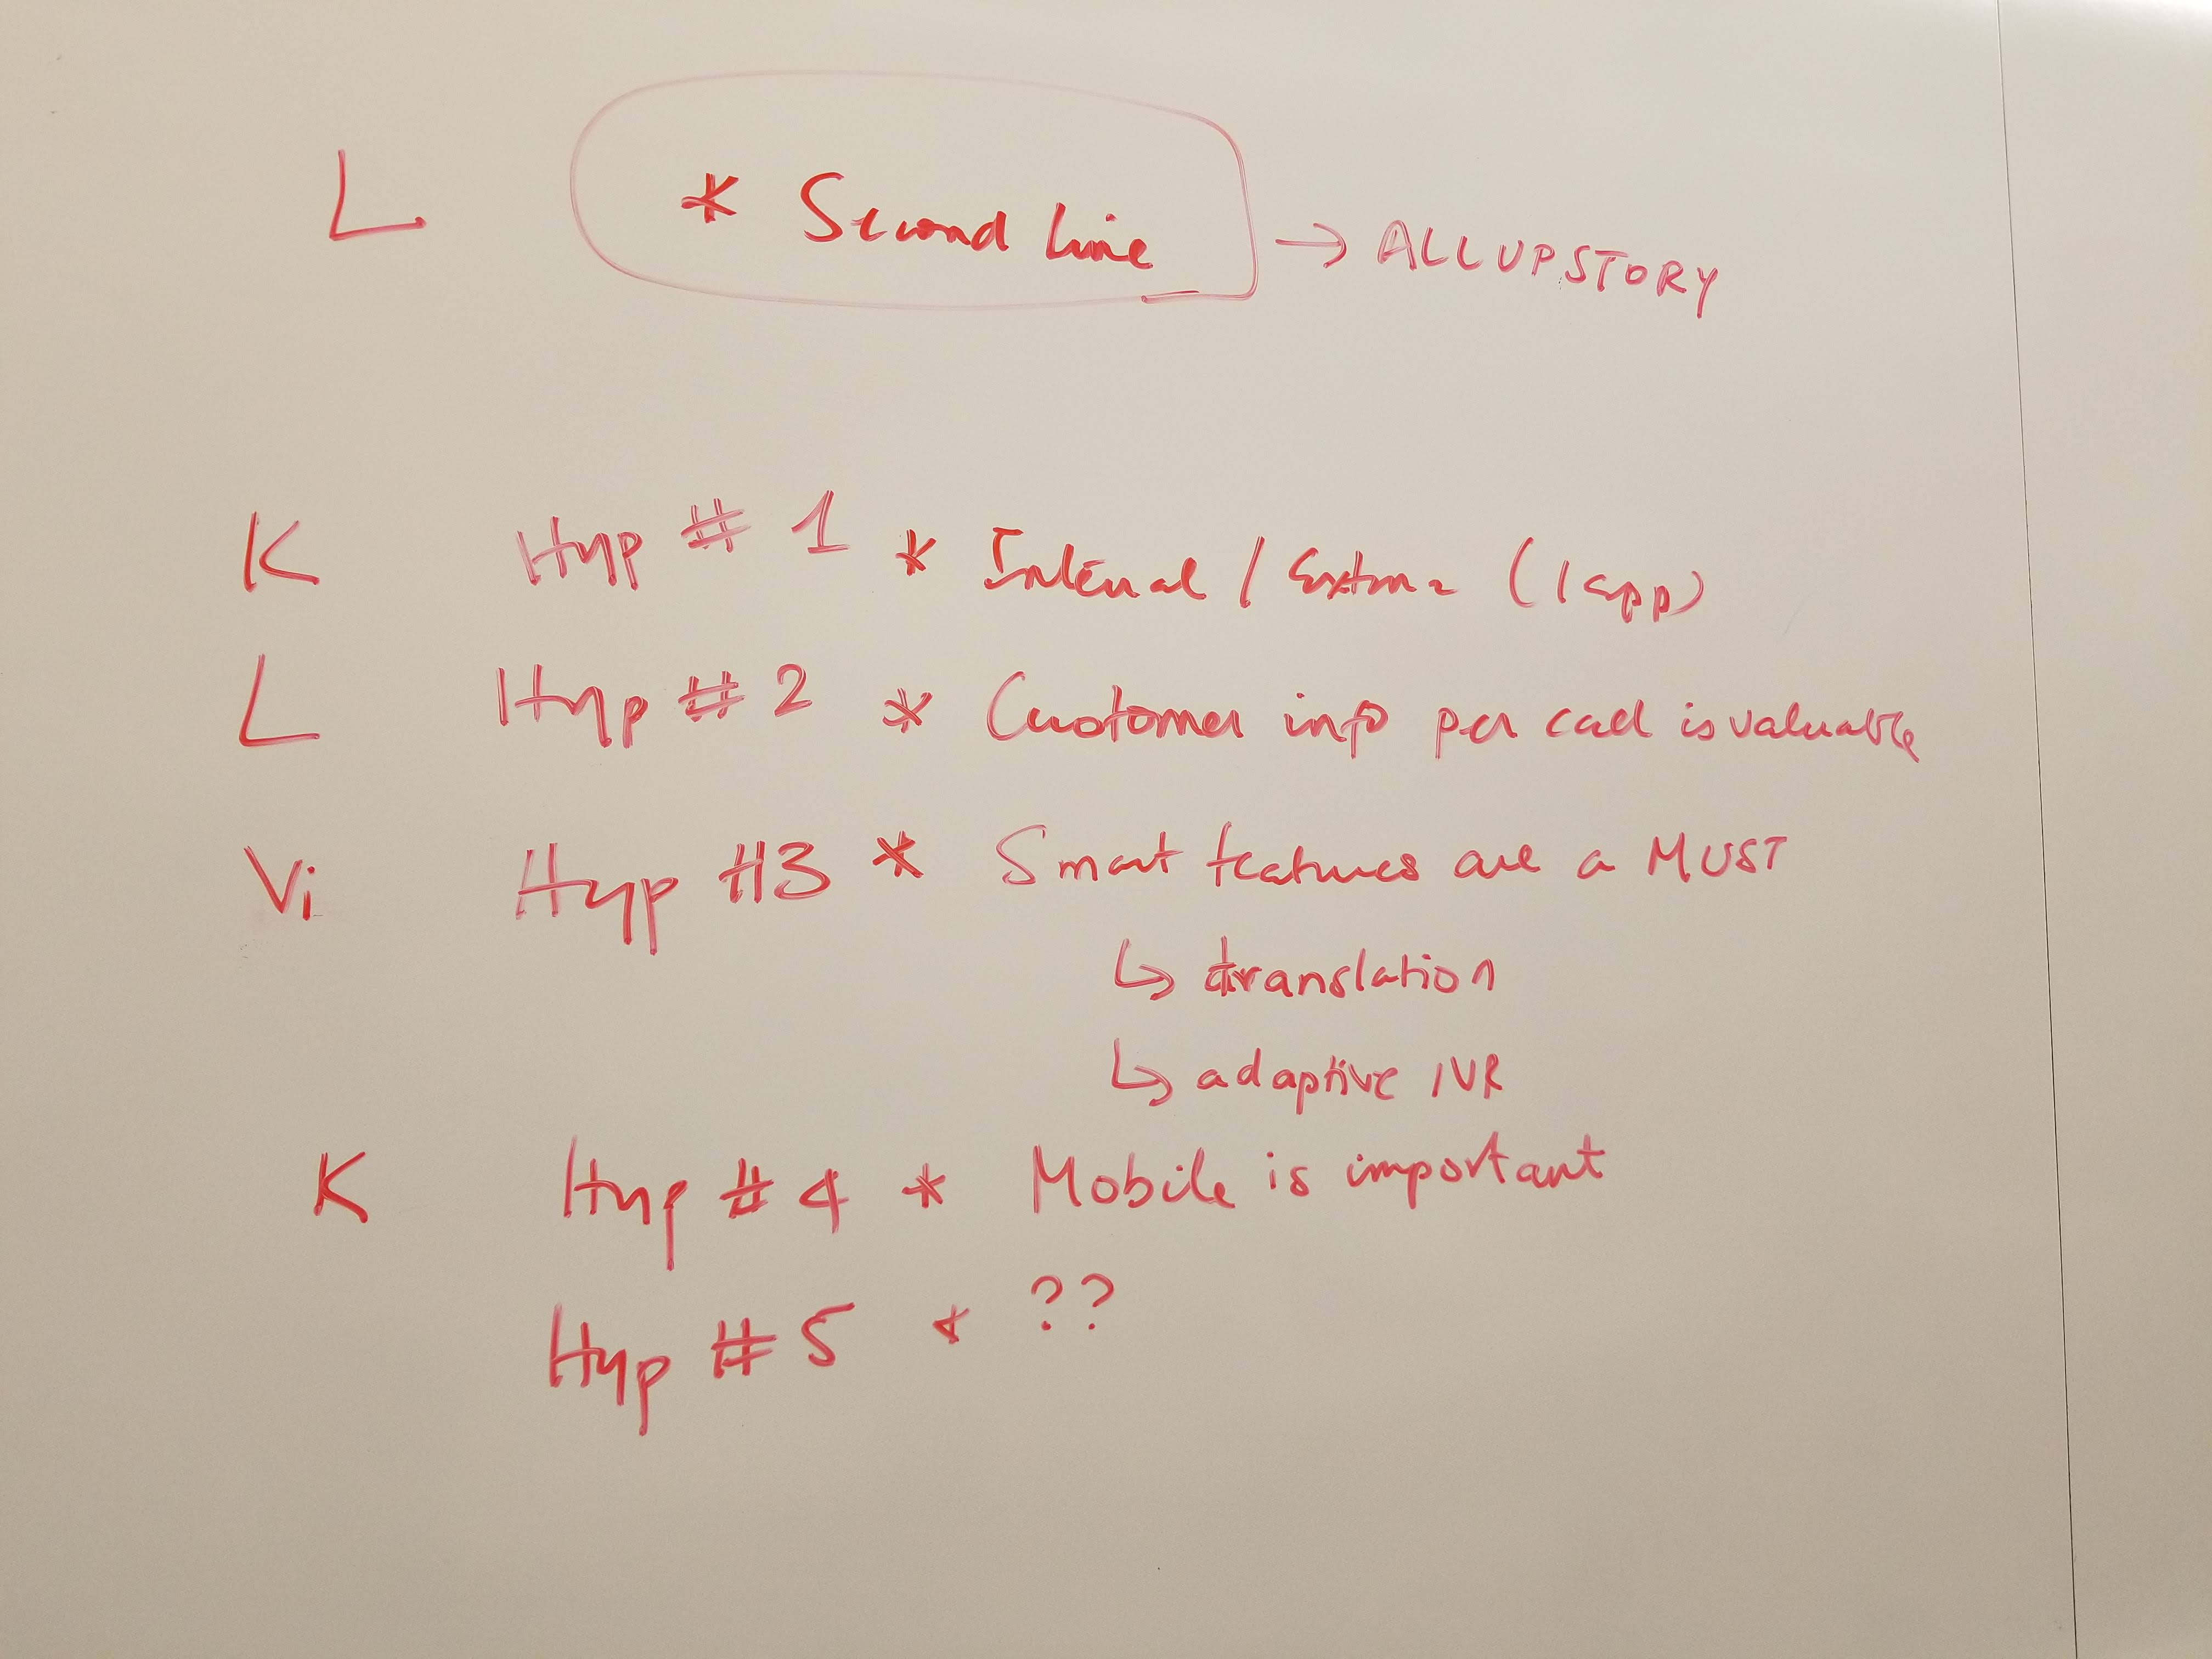 L * Second Line → ALL UP STORY
K Hyp # 1 * Internal / (1 app)
L Hyp # 2 * Customer info per call is valuable
Vi Hyp #3 * Smart features are a MUST
↳ translation
↳ adaptive IVR
K Hyp # 4 * Mobile is important
Hyp # 5 * ??